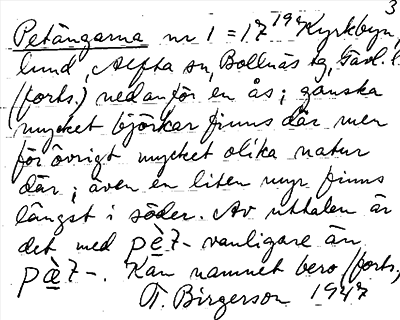 3
Petängarna nr 1 = 17 Kyrkbyn,
lund, Alfta sn, Bollnäs tg, Gävl. l.
(forts.) nedanför en ås; ganska
mycket björkar finns där men
för övrigt mycket olika natur
där; även en liten myr finns
längst i söder. Av uttalen är
det med pè̱7- vanligare än
pà̱7-. Kan namnet bero (forts.)
T. Birgerson 1947